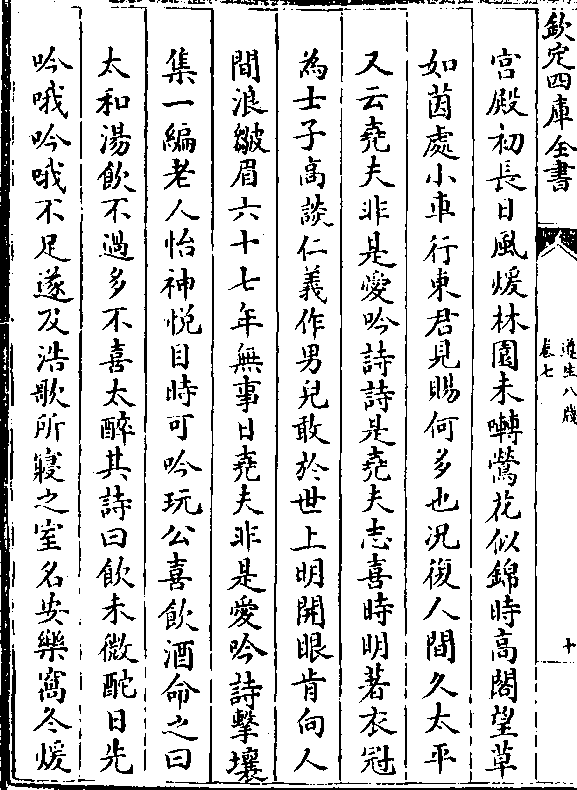 欽定四庫全書
遵生八牋
卷七
十
宫殿初長日風煖林園未囀鶯花似錦時高閣望草
如茵處小車行東君見賜何多也况復人間久太平
又云堯夫非是愛吟詩詩是堯夫志喜時明著衣冠
為士子高談仁義作男兒敢於世上明開眼肯向人
間浪皺眉六十七年無事日堯夫非是愛吟詩擊壤
集一編老人怡神悦目時可吟玩公喜飲酒命之曰
太和湯飲不過多不喜太醉其詩曰飲未微酡日先
吟哦吟哦不足遂及浩歌所寢之室名安樂窩冬煖